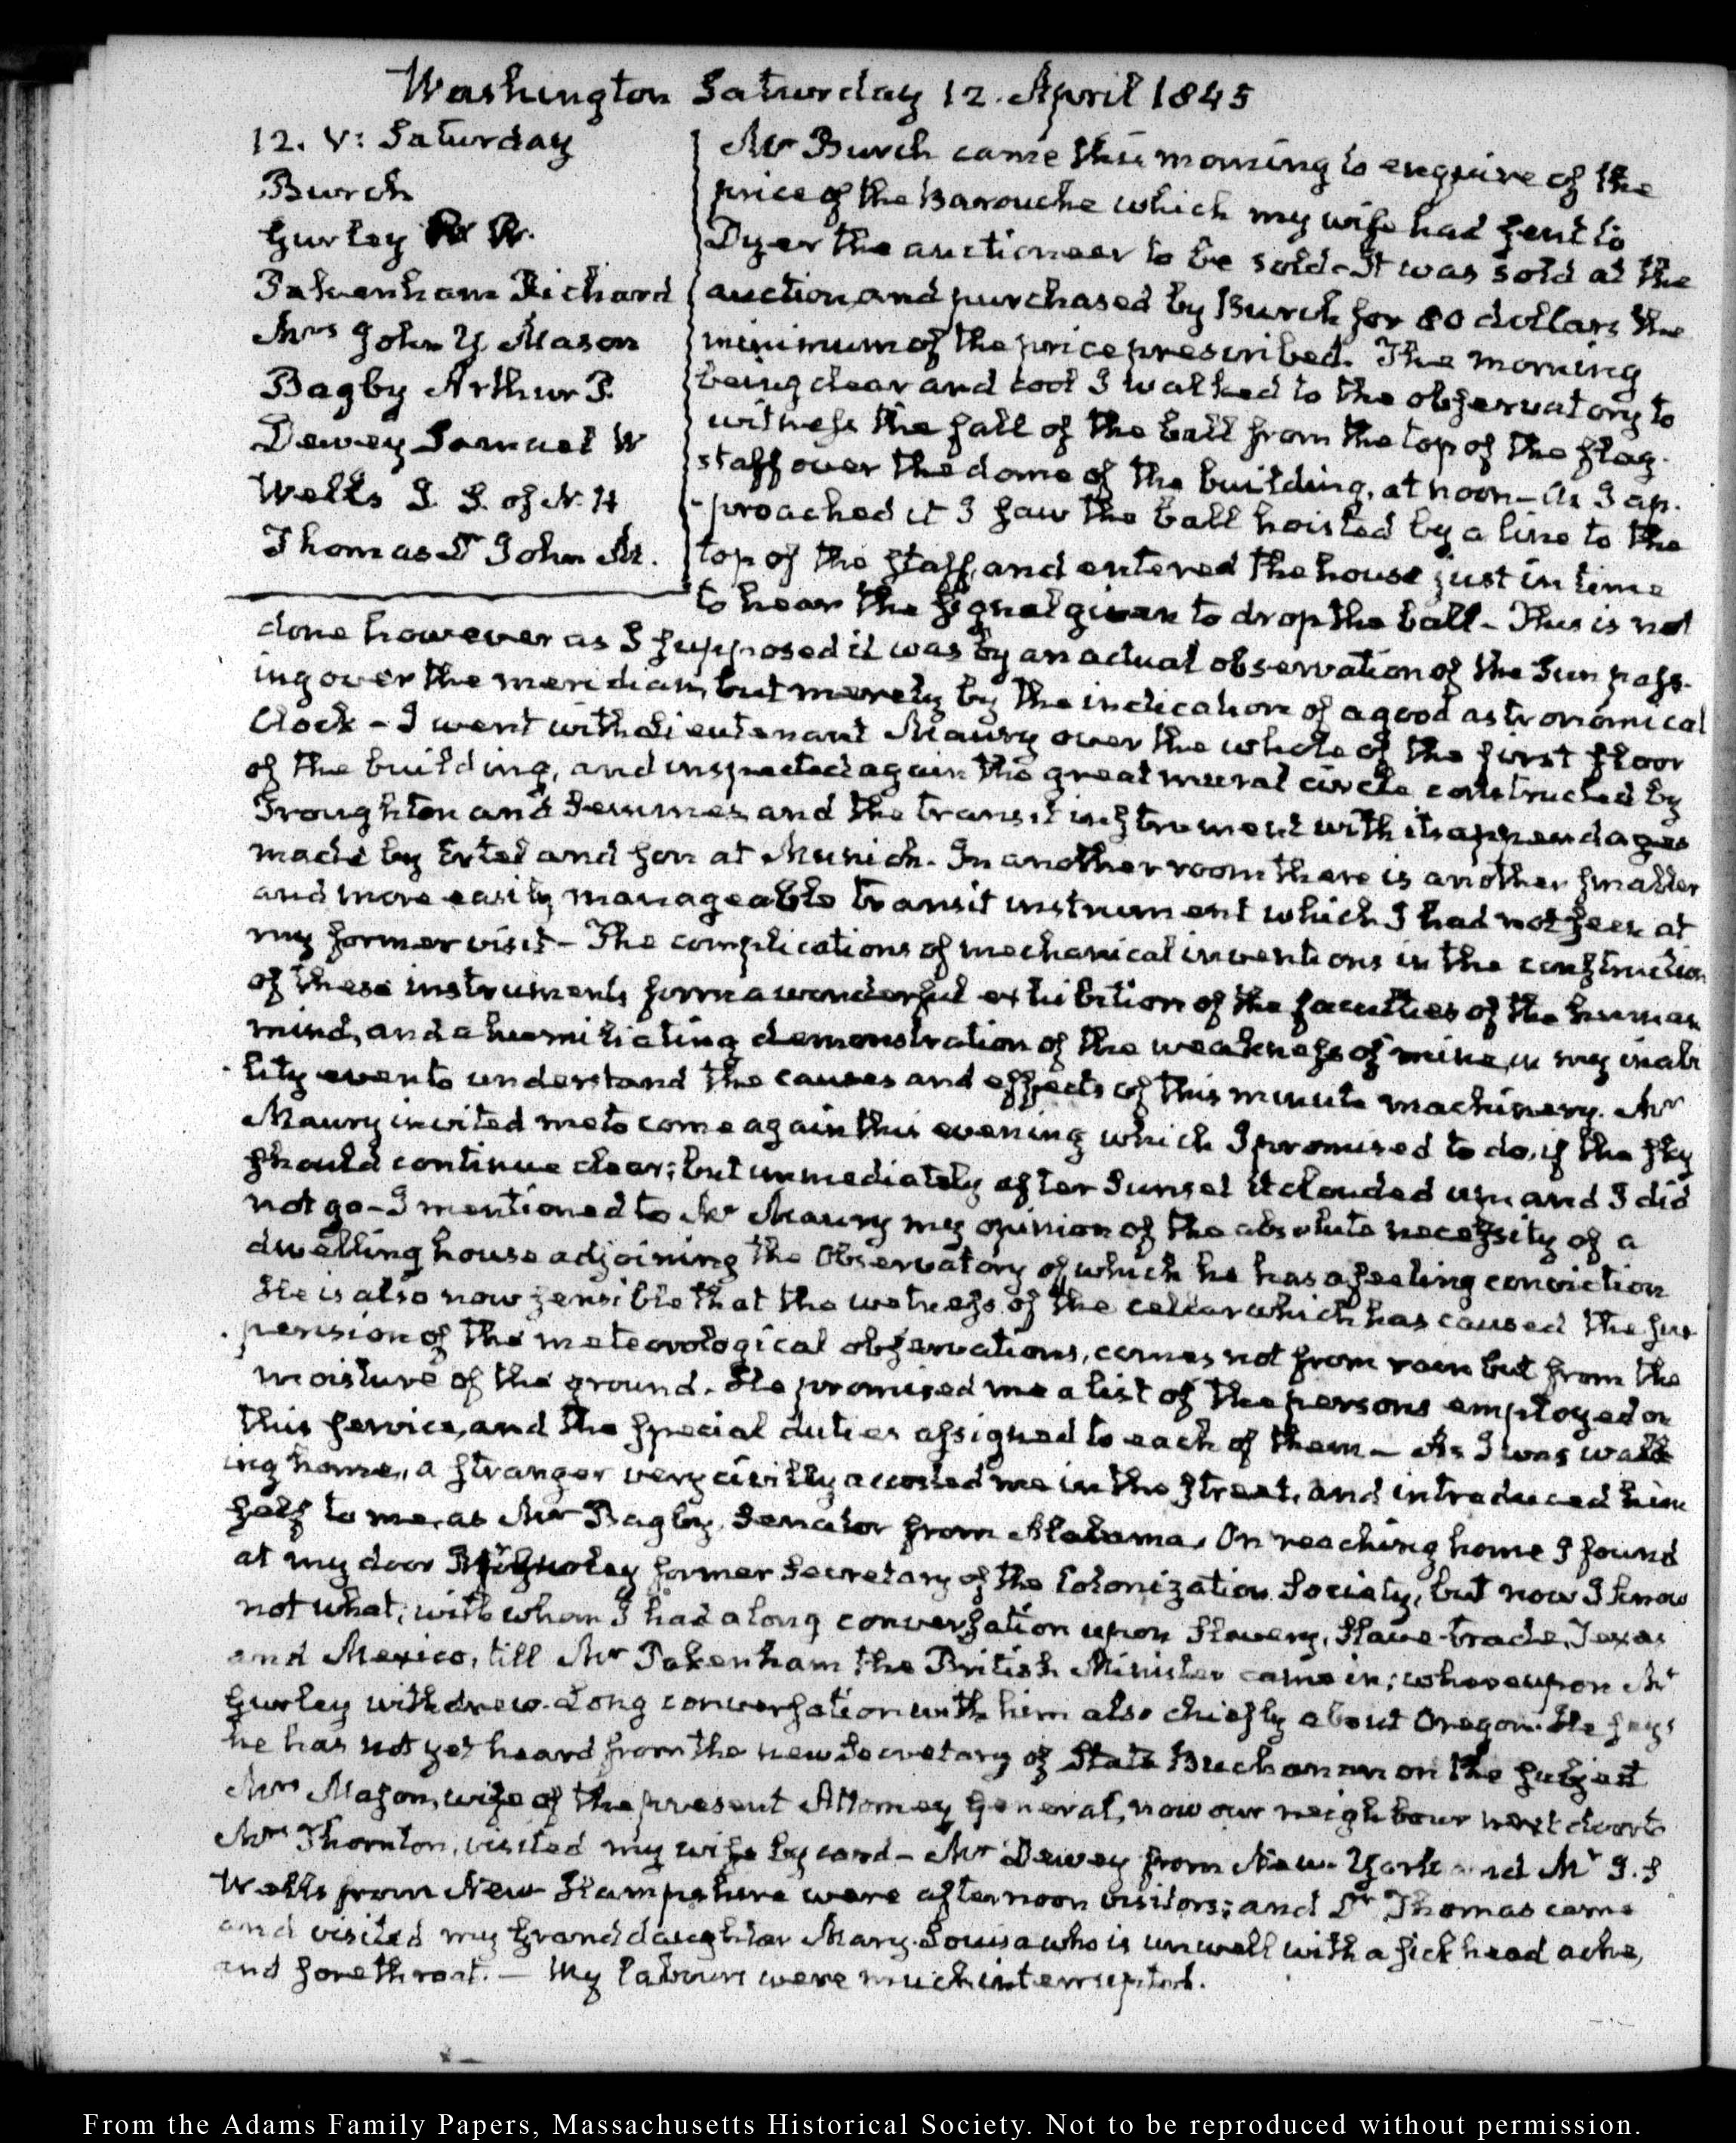 Washington Saturday 12. April 1845
12. V: Saturday
Burch
Gurley R. R.
Pakenham Richard
Mrs John Y. Mason
Bagby Arthur P.
Dewey Samuel W
Wells I. S. of N. H
Thomas Dr John M.
Mr Burch came this morning to enquire of the
price of the Barouche which my wife had sent to
Dyer the auctioneer to be sold - It was sold at the
auction, and purchased by Burch for 80 dollars the
minimum of the price prescribed. The morning
being clear and cool I walked to the observatory to
witness the fall of the ball from the top of the flag-
staff over the dome of the building, at noon - As I ap-
-proached it I saw the ball hoisted by a line to the
top of the staff, and entered the house just in time
to hear the signal given to drop the ball - This is not
done however as I supposed it was by an actual observation of the Sun pass-
ing over the meridian, but merely by the indication of a good astronomical
Clock - I went with Lieutenant Maury over the whole of the first floor
of the building, and inspected again the great mural circle constructed by
Troughton and Semmes, and the transit instrument with its appendages
made by Ertel and son at Munich. In another room there is another smaller
and more easily manageable transit instrument which I had not seen at
my former visit - The complications of mechanical inventions in the construction
of these instruments form a wonderful exhibition of the faculties of the human
mind, and a humiliating demonstration of the weakness of mine, in my inabi
-lity even to understand the causes and effects of this minute machinery. Mr
Maury invited me to come again this evening which I promised to do, if the sky
should continue clear; but immediately after Sunset it clouded up and I did
not go - I mentioned to Mr Maury my opinion of the absolute necessity of a
dwelling house adjoining the Observatory of which he has a feeling conviction
He is also now sensible that the wetness of the cellar which has caused the sus
-pension of the meteorological observations, comes not from rain but from the
moisture of the ground. He promised me a list of the persons employed on
this service, and the special duties assigned to each of them - As I was walk
ing home, a stranger very civilly accosted me in the street, and introduced him
self to me, as Mr Bagby, Senator from Alabama. On reaching home I found
at my door Gurley former Secretary of the Colonization Society, but now I know
not what, with whom I had a long conversation upon Slavery, Slave-trade, Texas
and Mexico, till Mr Pakenham the British Minister came in; whereupon Mr
Gurley withdrew. Long conversation with him also chiefly about Oregon. He says
he has not yet heard from the new Secretary of State Buchanan on the subject
Mrs Mason, wife of the present Attorney General, now our neighbour next door to
Mrs Thornton, visited my wife by card - Mr Dewey from New-York and Mr I. S
Wells from New Hampshire were afternoon visitors; and Dr Thomas came
and visited my Granddaughter Mary-Louisa who is unwell with a sick head ache,
and sore throat. - My labours were much interrupted.
From the Adams Family Papers, Massachusetts Historical Society. Not to be reproduced without permission.